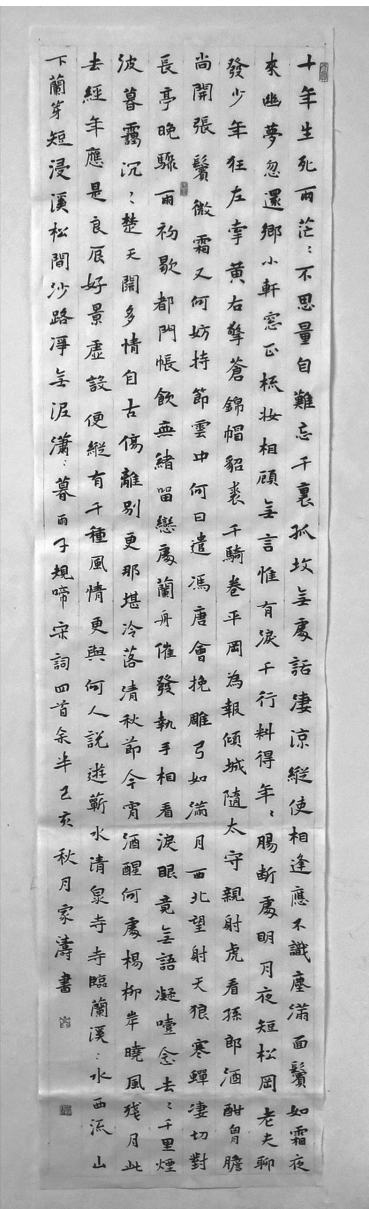 十年生死兩茫:不思量自難忘千裏孤坟無處話淒涼縱使相逢應不識塵滿面鬢如霜夜
來幽夢忽還鄉小軒窓正梳妝相顧無言惟有淚千行料得年:腸斷處明月夜短松岡老夫聊
發少年狂左牽黃右擎蒼錦帽貂裘千騎卷平岡為報傾城隨太守親射虎看孫郎酒酣胷膽
尚開張鬢微霜又何妨持節雲中何日遣馮唐會挽雕弓如滿月西北望射天狼寒蟬淒切對
長亭晚驟雨初歇都門帳飲無緒留戀處蘭舟催發執手相看淚眼竟無語凝噎念去:千里煙
波暮靄沉:楚天闊多情自古傷離別更那堪冷落清秋節今宵酒醒何處楊柳岸曉風殘月此
去經年應是良辰好景虛設便縱有千種風情更與何人說遊蘄水清泉寺寺臨蘭溪:水西流山
下蘭芽短浸溪松間沙路淨無泥瀟:暮雨子規啼宋詞四首余半己亥秋月家濤書